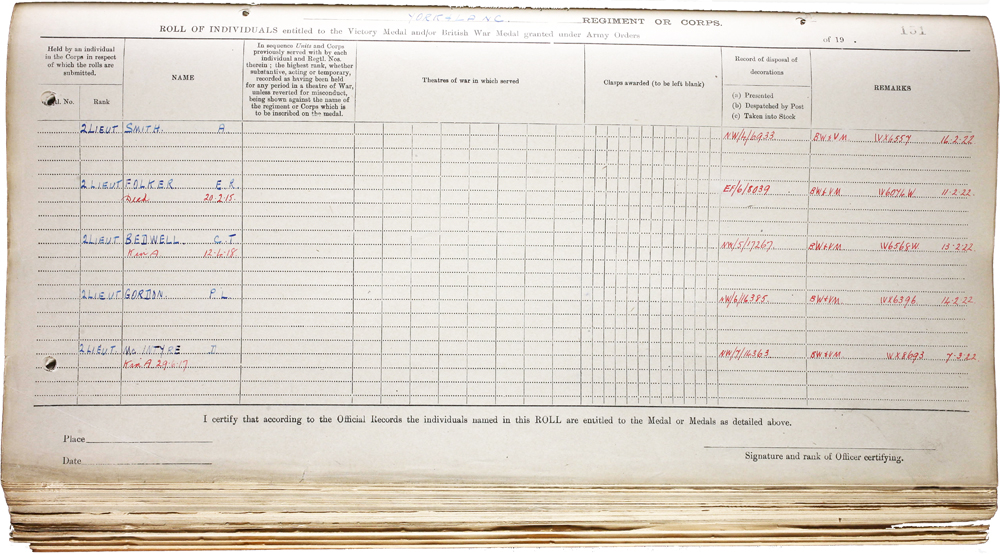 YORK & LANC. REGIMENT OR CORPS. 151
ROLL OF INDIVIDUALS entitled to the Victory Medal and/or British War Medal granted under Army Orders of 19 .
Held by an individual
in the Corps in respect
of which the rolls are
submitted.
d. No.
Rank
NAME
In sequence Units and Corps
previously served with by each
individual and Regtl. Nos.
therein; the highest rank, whether
substantive, acting or temporary,
recorded as having been held
for any period in a theatre of War,
unless reverted for misconduct,
being shown against the name of
the regiment or Corps which is
to be inscribed on the medal.
Theatres of war in which served
Clasps awarded (to be left blank)
Record of disposal of
decorations
(a) Presented
(b) Despatched by Post
(c) Taken into Stock
REMARKS
2 LIEUT SMITH. A. NW/4/6933 BW&VM VX6557 16.2.22
2 LIEUT FOLKER E.R. EF/6/8039 BW&VM V6076W 11.2.22
Died 20.2.15.
2 LIEUT BEDWELL. C.T. NW/5/17267 BW&VM V6568W 13.2.22
K in A 12.6.18.
2 LIEUT GORDON. P.L. NW/6/16385 BW&VM VX6396 14.2.22
2 LIEUT. Mc INTYRE D. NW/7/16363 BW&VM VX8693 7.3.22
K in A
I certify that according to the Official Records the individuals named in this ROLL are entitled to the Medal or Medals as detailed above.
Place
Date
Signature and rank of Officer certifying.